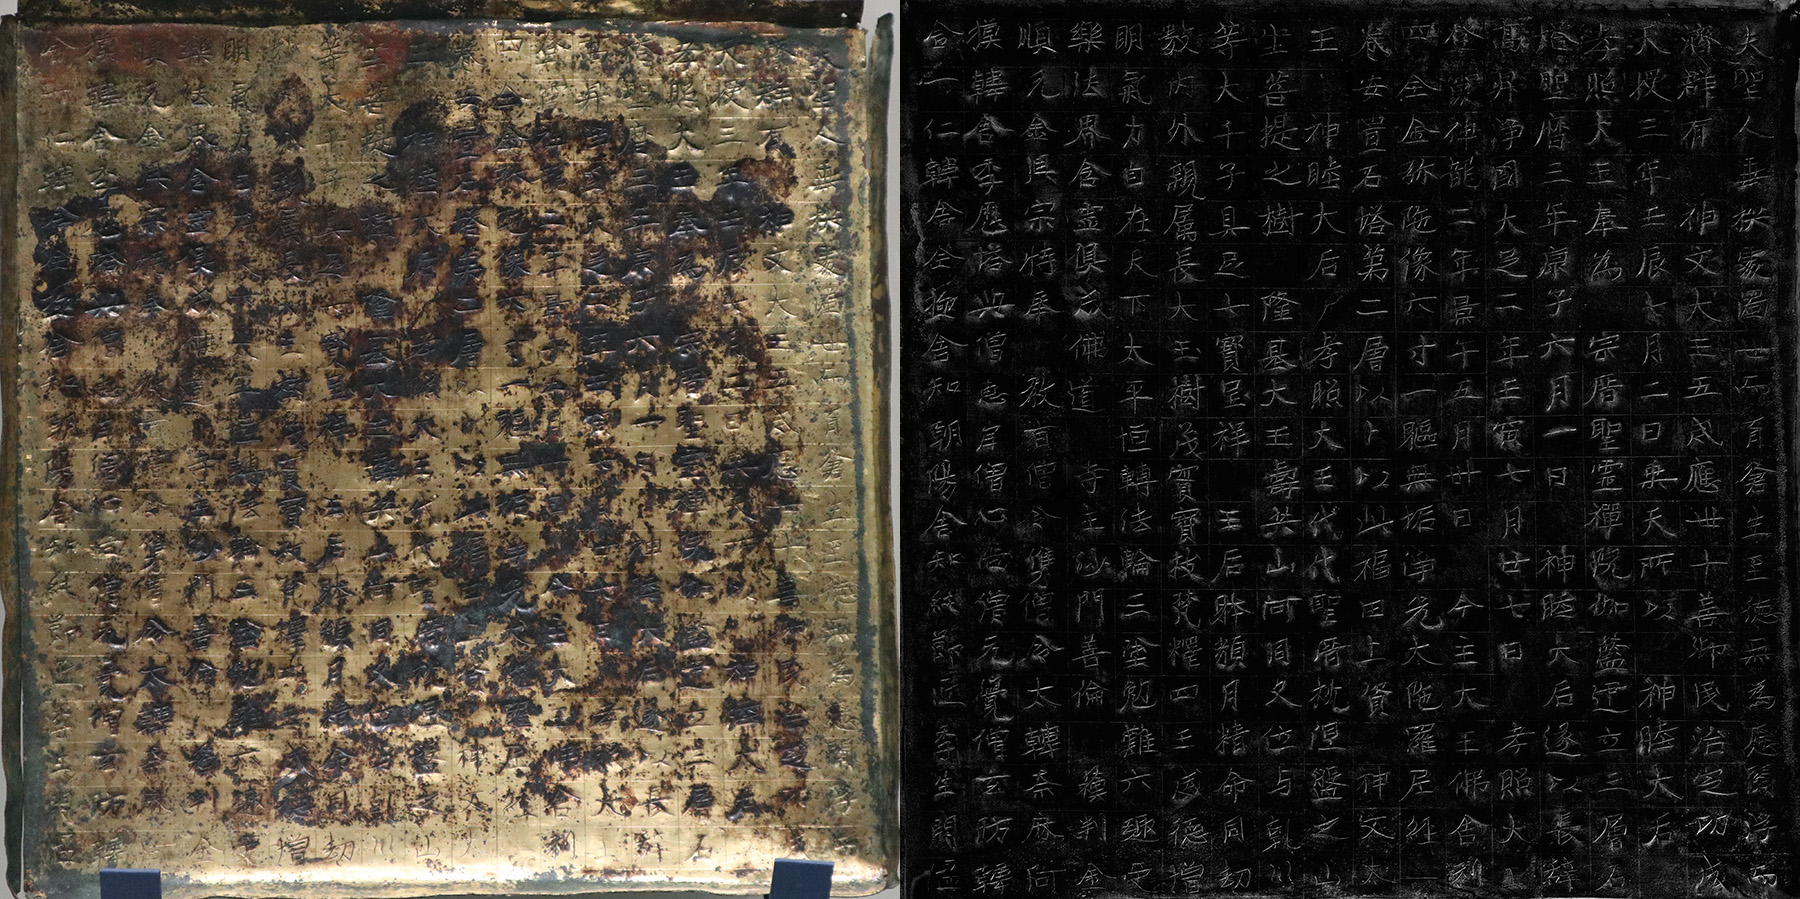 夫聖人垂拱處濁世而育蒼生至德無爲應閻浮而
濟群有 神文大王五戒應世十善御民治定功成
天授三年壬辰七月二日乘天所以 神睦大后
孝照大王奉爲 宗厝聖靈禪院伽藍建立三層石
塔聖曆三年庚子六月一日 神睦大后遂以長辭
高昇淨國大足二年壬寅七月廿七日 孝照大王
登霞神龍二年景午五月卅日 今主大王佛舍利
四全金弥陁像六寸一軀無垢淨光大陁羅尼經一
卷安置石塔第二層以卜以此福田上資 神文大
王 神睦大后 孝照大王代代聖厝枕涅盤之山
坐菩提之樹 隆基大王壽共山河同久位与軋川
等大千子具足七寶呈祥 王后體類月精命同劫
數內外親屬長大玉樹茂實寶枝梵釋四王威德增
明氣力自在天下太平恒轉法輪三塗勉難六趣受
樂法界含靈俱成佛道 寺主沙門善倫 蘇判金
順元金興宗特奉 敎旨僧令雋僧令太韓奈麻阿
摸韓舍季歷塔典僧惠岸僧心尙僧元覺僧玄昉韓
舍一仁韓舍全極舍知朝陽舍知純節匠季生閼溫